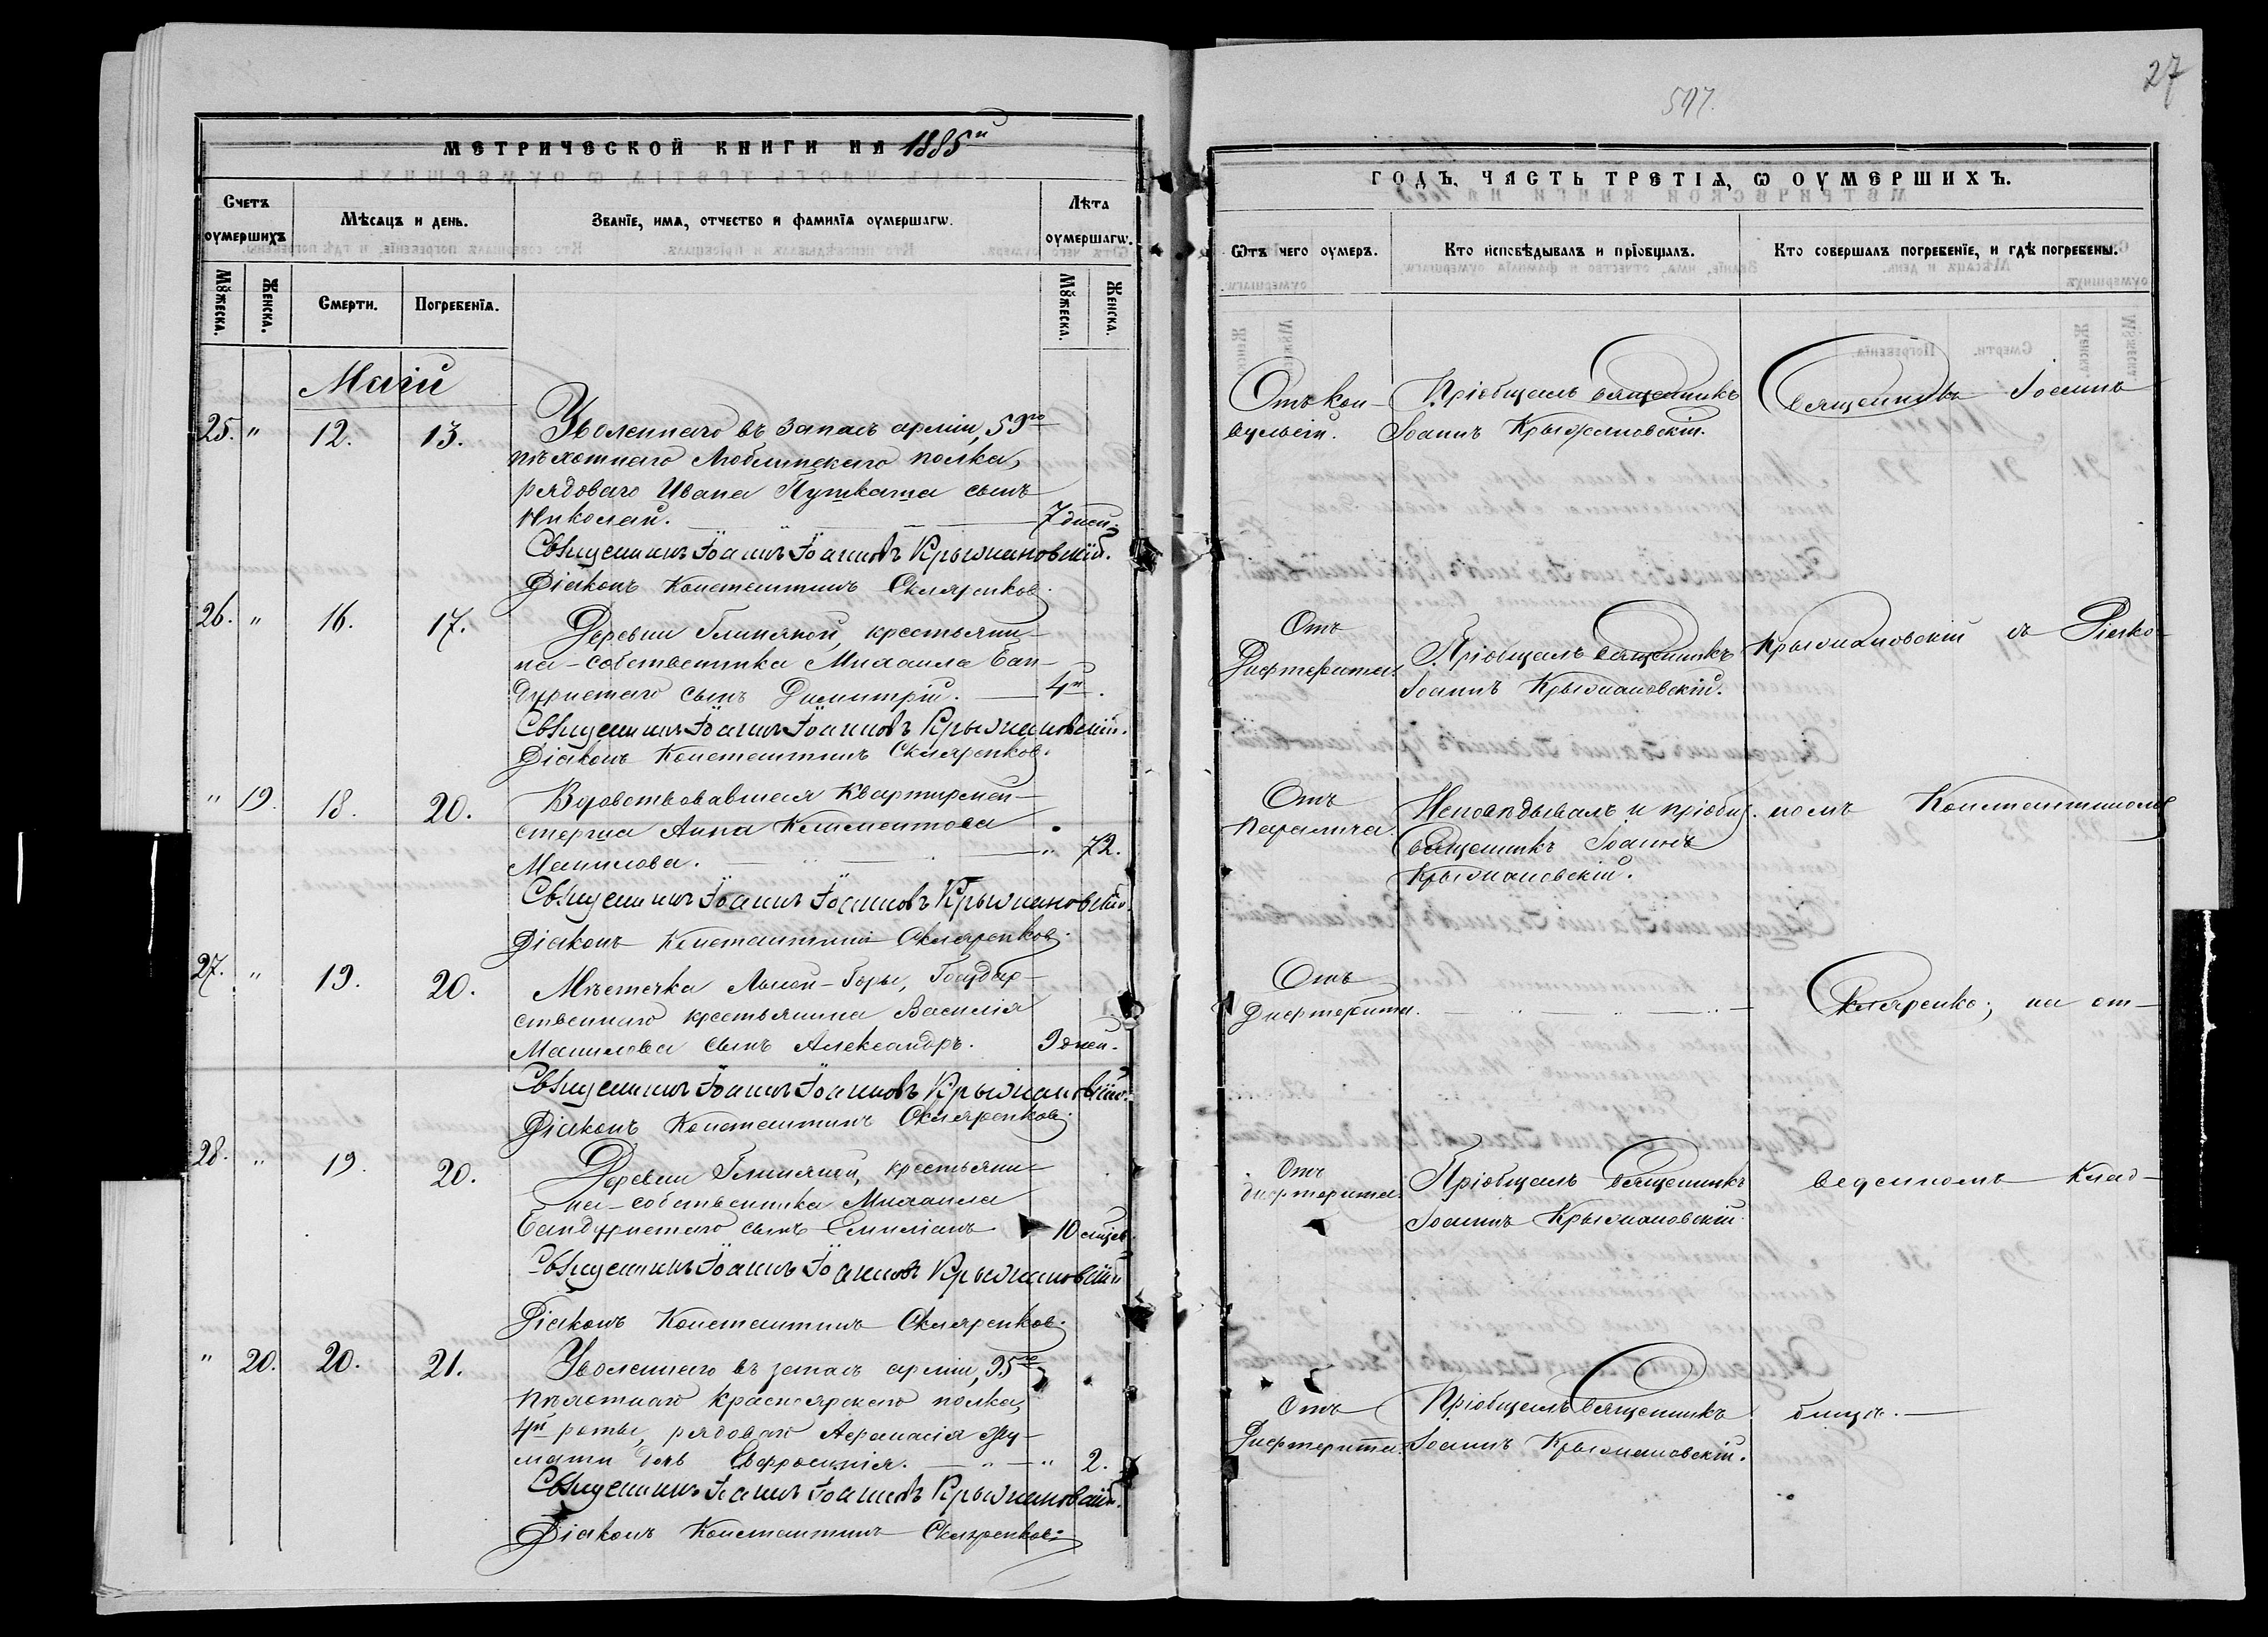 27
597.
МЕТРИЧЕСКОЙ КНИГИ НА 1885й
ГОДЪ, ЧАСТЬ ТРЕТІѦ, Ѡ ОУМЕРШИХЪ.
Счетъ оумершихъ
Мѣсѧцъ и день.
Званїе, имѧ, отчество и фамилїѧ оумершагѡ.
Лѣта оумершагѡ.
Мꙋжеска.
Женска.
Смерти.
Погребенїѧ.
Мꙋжеска.
Женска.
Ѿтъ чего оумеръ.
Кто исповѣдывалъ и прїобщалъ.
Кто совершалъ погребенїе, и гдѣ погребены.
Маій
25. " 12. 13.
Уволеннаго въ запасъ арміи, 59го
пѣхотнаго Люблинскаго полка,
рядоваго Ивана Пушкаша сынъ
Николай. 7 дней
Священникъ Іоаннъ Іоанновъ Крыжановскій.
Діаконъ Константинъ Скляренков.
Отъ кон-
вульсій.
Пріобщалъ священникъ
Іоаннъ Крыжановскій.
Священникъ Іоаннъ
26. " 16. 17.
Деревни Глиняной, крестьяни-
на-собственника Михаила Бан-
дуристаго сынъ Димитрій. 4
Священникъ Іоаннъ Іоанновъ Крыжановскій.
Діаконъ Константинъ Скляренков.
Отъ
Дифтерита.
Пріобщалъ священникъ
Іоаннъ Крыжановскій.
Крыжановскій съ Діако-
" 19. 18. 20.
Вдовствовавшая Квартирмей-
стерша Анна Климентова
Манилова. " 72.
Священникъ Іоаннъ Іоанновъ Крыжановскій.
Діаконъ Константинъ Скляренков.
Отъ
паралича.
Исповѣдывалъ и пріобщ.
священникъ Іоаннъ
Крыжановскій.
номъ Константиномъ
27. " 19. 20.
Мѣстечка Лысой-Горы, Государ-
ственнаго крестьянина Василія
Манилова сынъ Александръ. 9 дней.
Священникъ Іоаннъ Іоанновъ Крыжановскій.
Діаконъ Константинъ Скляренков.
Отъ
Дифтерита.
Скляренко; на от-
28. " 19. 20.
Деревни Глиняной, крестьяни-
на-собственника Михаила
Бандуристаго сынъ Емиліанъ. 10 мцев.
Священникъ Іоаннъ Іоанновъ Крыжановскій
Діаконъ Константинъ Скляренков.
Отъ
дифтерита.
Пріобщалъ священникъ
Іоаннъ Крыжановскій.
веденномъ клад-
" 20. 20. 21.
Уволеннаго въ запасъ арміи, 95го
пѣхотнаго Красноярскаго полка,
4й роты, рядоваго Аѳанасія
дочь Евфросинія. " 2.
Священникъ Іоаннъ Іоанновъ Крыжановскій.
Діаконъ Константинъ Скляренков.
Отъ
Дифтерита.
Пріобщалъ священникъ
Іоаннъ Крыжановскій.
бищѣ.